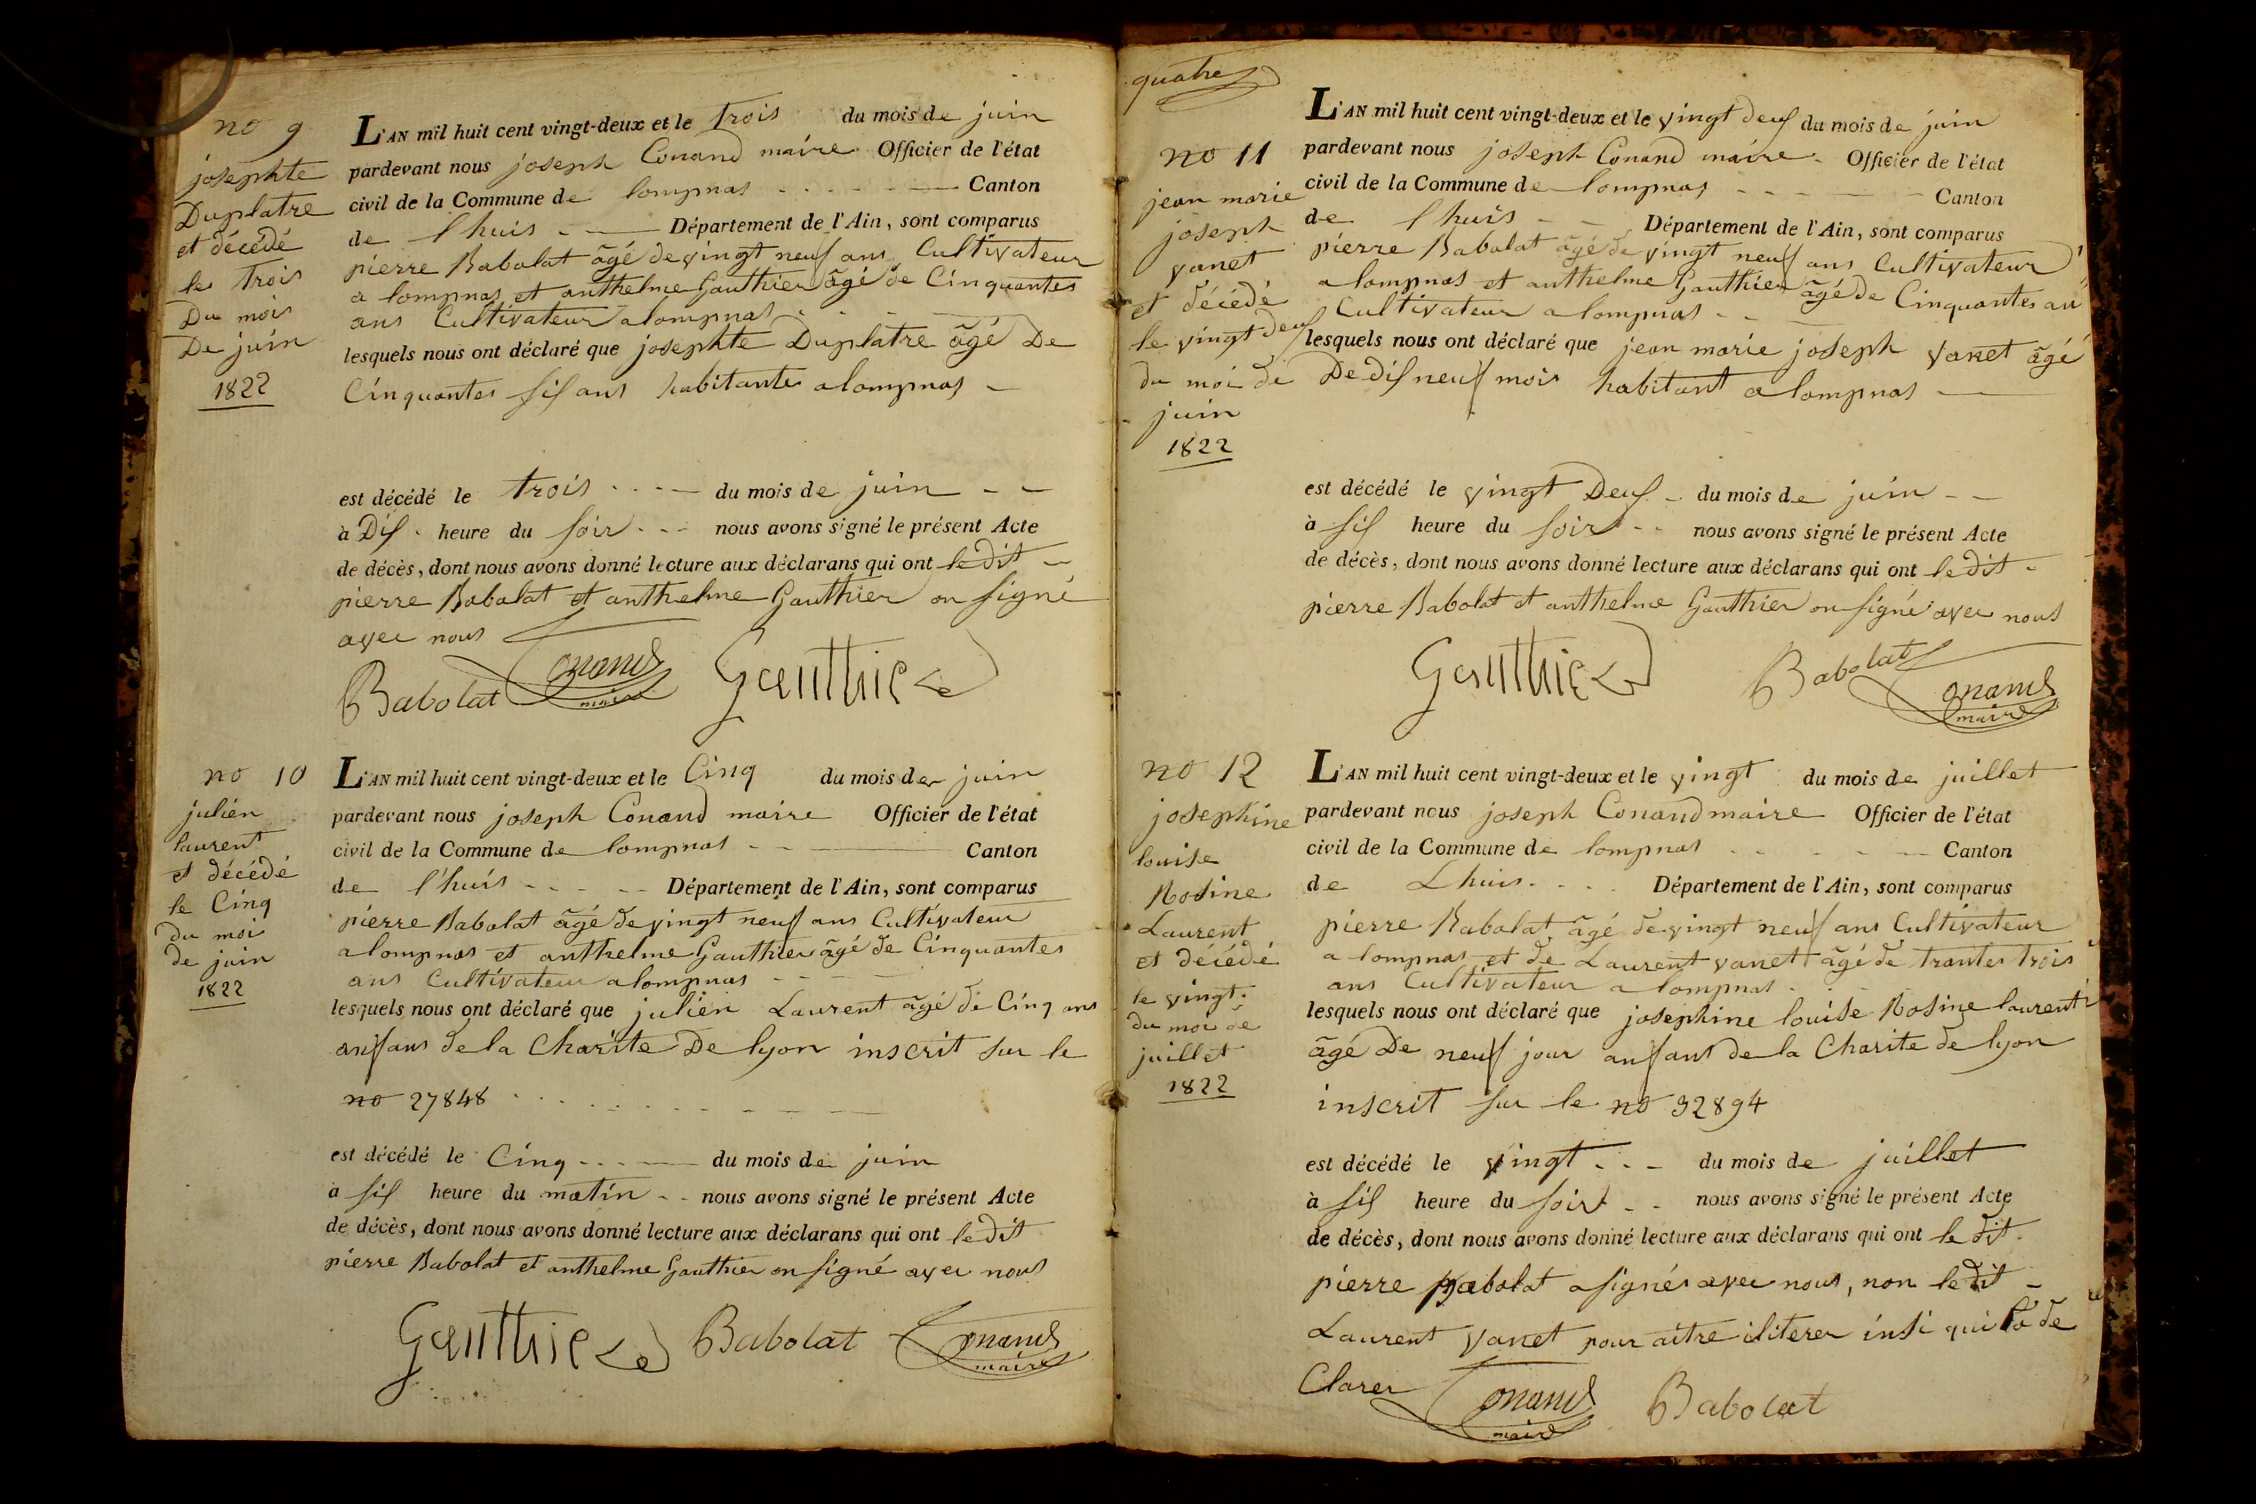 no 9
josephte
Duplatre
et décédé
le trois
Du mois
De juin
1822
L'AN mil huit cent vingt-deux et le trois du mois de juin
pardevant nous joseph Conand maire Officier de l'état
civil de la Commune de lompnas Canton
de lhuis Département de l'Ain, sont comparus
pierre Babolat âgé de vingt neuf ans Cultivateur
a lompnas et anthelme Gauthier âgé de Cinquantes
ans Cultivateur a lompnas
lesquels nous ont déclaré que josephte Duplatre âgé De
Cinquantes sis ans habitante a lompnas
est décédé le trois du mois de juin
à Dis heure du soir nous avons signé le présent Acte
de décès, dont nous avons donné lecture aux déclarans qui ont ledit
pierre Babolat et anthelme Gauthier on signé
avec nous
Babolat Conand maire Gauthier
no 10
julien
laurent
et décédé
le Cinq
du moi
de juin
1822
L'AN mil huit cent vingt-deux et le Cinq du mois de juin
pardevant nous joseph Conand maire Officier de l'état
civil de la Commune de lompnas Canton
de l'huis Département de l'Ain, sont comparus
pierre Babolat âgé de vingt neuf ans Cultivateur
a lompnas et anthelme Gauthier âgé de Cinquantes
ans Cultivateur a lompnas
lesquels nous ont déclaré que julien Laurent âgé de Cinq ans
anfans de la Charite De lyon inscrit sur le
no 27848
est décédé le Cinq du mois de juin
à sis heure du matin nous avons signé le présent Acte
de décès, dont nous avons donné lecture aux déclarans qui ont ledit
pierre Babolat et anthelme Gauthier on signé avec nous
Gauthier Babolat Conand maire
quatre
no 11
jean marie
joseph
vanet
et décédé
le vingt deus
du moi de
juin
1822
L'AN mil huit cent vingt-deux et le vingt deus du mois de juin
pardevant nous joseph Conand maire Officier de l'état
civil de la Commune de lompnas Canton
de lhuis Département de l'Ain, sont comparus
pierre Babolat âgé de vingt neuf ans Cultivateur
a lompnas et anthelme Gauthier âgé de Cinquantes an
Cultivateur a lompnas
lesquels nous ont déclaré que jean marie joseph vanet âgé
De dis neuf mois habitant a lompnas
est décédé le vingt Deus du mois de juin
à sis heure du soir nous avons signé le présent Acte
de décès, dont nous avons donné lecture aux déclarans qui ont ledit
pierre Babolat et anthelme Gauthier on signé avec nous
Gauthier Babolat Conand maire
no 12
josephine
louise
Rosine
Laurent
et décédé
le vingt
du moi de
juillet
1822
L'AN mil huit cent vingt-deux et le vingt du mois de juillet
pardevant nous joseph Conand maire Officier de l'état
civil de la Commune de lompnas Canton
de Lhuis Département de l'Ain, sont comparus
pierre Babolat âgé de vingt neuf ans Cultivateur
a lompnas et de Laurent vanet âgé de trantes trois
ans Cultivateur a lompnas
lesquels nous ont déclaré que josephine louise Rosine laurent
âgé De neuf jour anfant de la Charite de lyon
inscrit sur le no 32894
est décédé le vingt du mois de juillet
à sis heure du soir nous avons signé le présent Acte
de décès, dont nous avons donné lecture aux déclarans qui ont le dit
pierre Babolat a signés avec nous, non le dit
Laurent vanet pour aitre iliterer insi qui la de
Clarer Conand maire Babolat